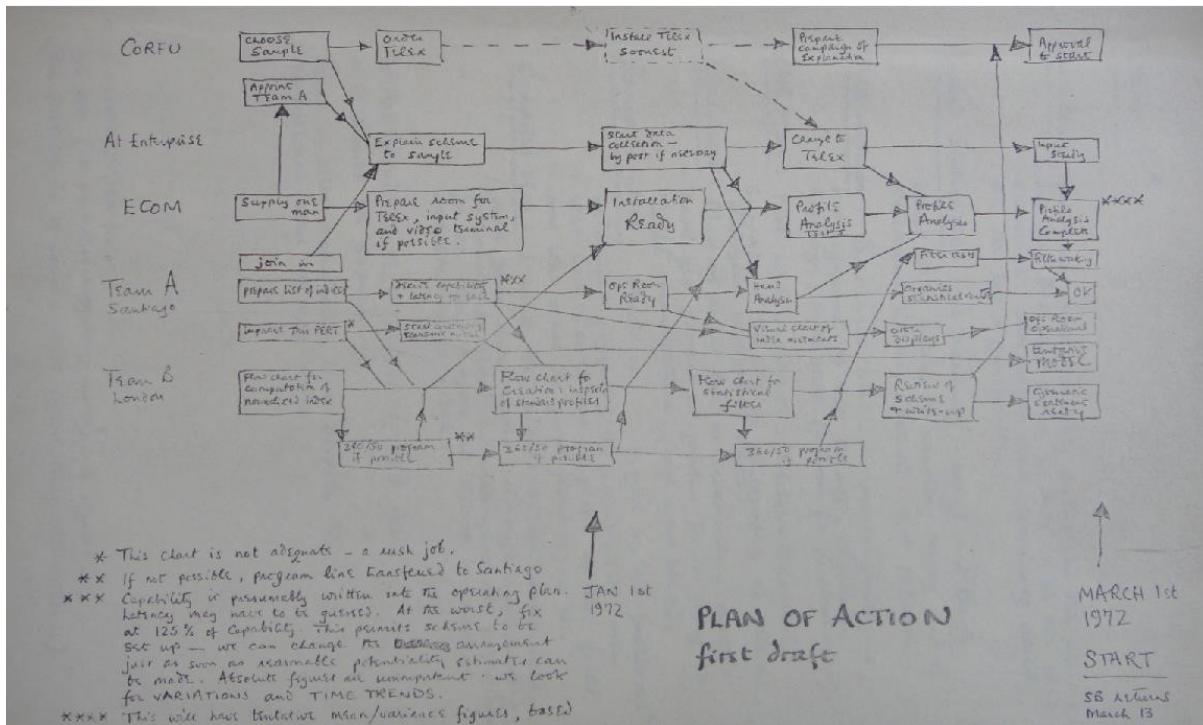 CORFU
CHOOSE
Sample
Order
TELEX
Install TELEX
Soonest
Prepare
campaign of
Explanation
Approval
to Start
Appoint
TEAM A
At Enterprise
Explain scheme
to Sample
Start data
collection —
by post if necessary
Change to
TELEX
Input
Steady
ECOM
Supply one
man
Prepare room for
TELEX, input system,
and video terminal
if possible.
Installation
READY
PROFILE
Analysis
Profile
Analyses
Profile
Analysis
Complete
****
join in
Team A
Santiago
prepare list of indices
***
Ops Room
Ready
Hand
Analysis
Filter tests
Filter working
Organise
OK
improve this PERT
*
Visual chart of
Data
Displays
Ops Room
Operational
Tentative
MODEL
Team B
London
Flow chart for
computation of
index
Flow chart for
Creation + inspection
of profiles
Flow chart for
statistical
filter
Review of
Scheme
+ write-up
Cybernetic
ready
360/50 program
if possible
**
360/50 program
if possible
360/50 program
if possible
* This chart is not adequate — a rush job.
** If not possible, program line transferred to Santiago
*** Capability is presumably written into the operating plan.
Latency may have to be guessed. At the worst, fix
at 125% of Capability. This permits scheme to be
set up — we can change the arrangement
just as soon as reasonable potentiality estimates can
be made. Absolute figures are unimportant. we look
for VARIATIONS and TIME TRENDS.
**** This will have tentative mean/variance figures, based
JAN 1st
1972
PLAN OF ACTION
first draft
MARCH 1st
1972
START
SB returns
March 13